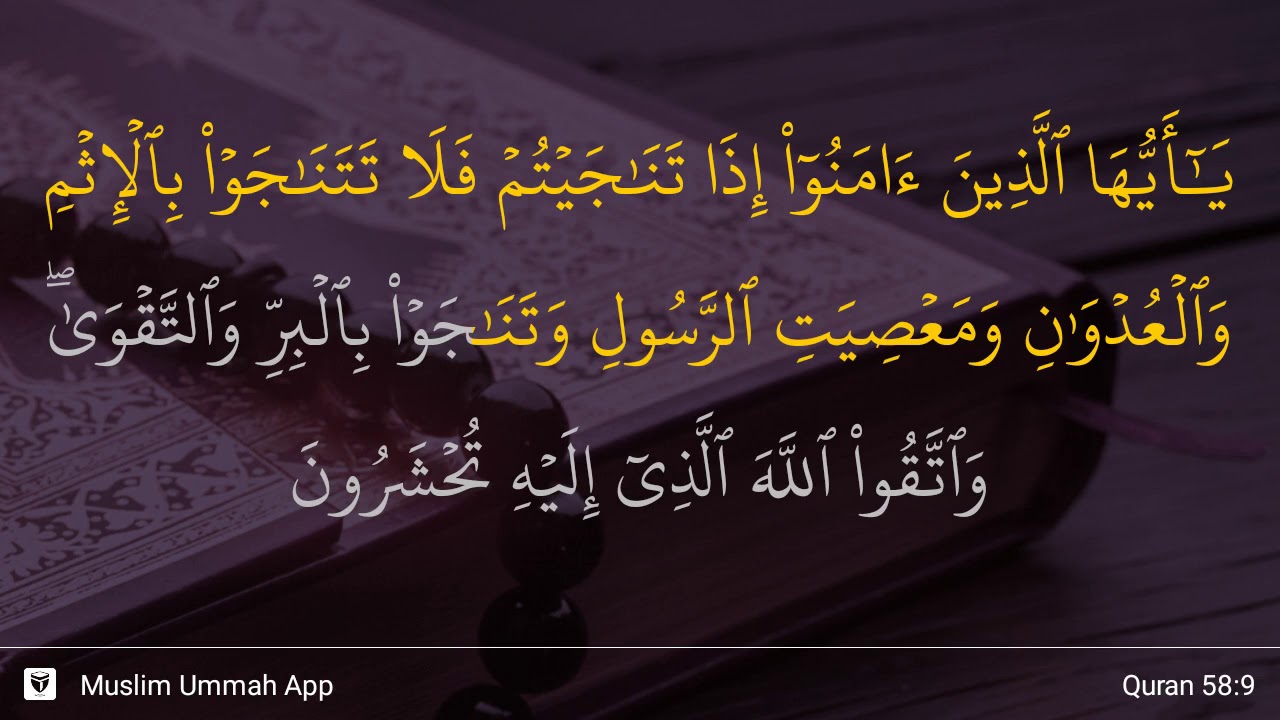 يَـٰٓأَيُّهَا ٱلَّذِينَ ءَامَنُوٓا۟ إِذَا تَنَـٰجَيْتُمْ فَلَا تَتَنَـٰجَوْا۟ بِٱلْإِثْمِ
وَٱلْعُدْوَٰنِ وَمَعْصِيَتِ ٱلرَّسُولِ وَتَنَـٰجَوْا۟ بِٱلْبِرِّ وَٱلتَّقْوَىٰ ۖ
وَٱتَّقُوا۟ ٱللَّهَ ٱلَّذِىٓ إِلَيْهِ تُحْشَرُونَ
Muslim Ummah App
Quran 58:9